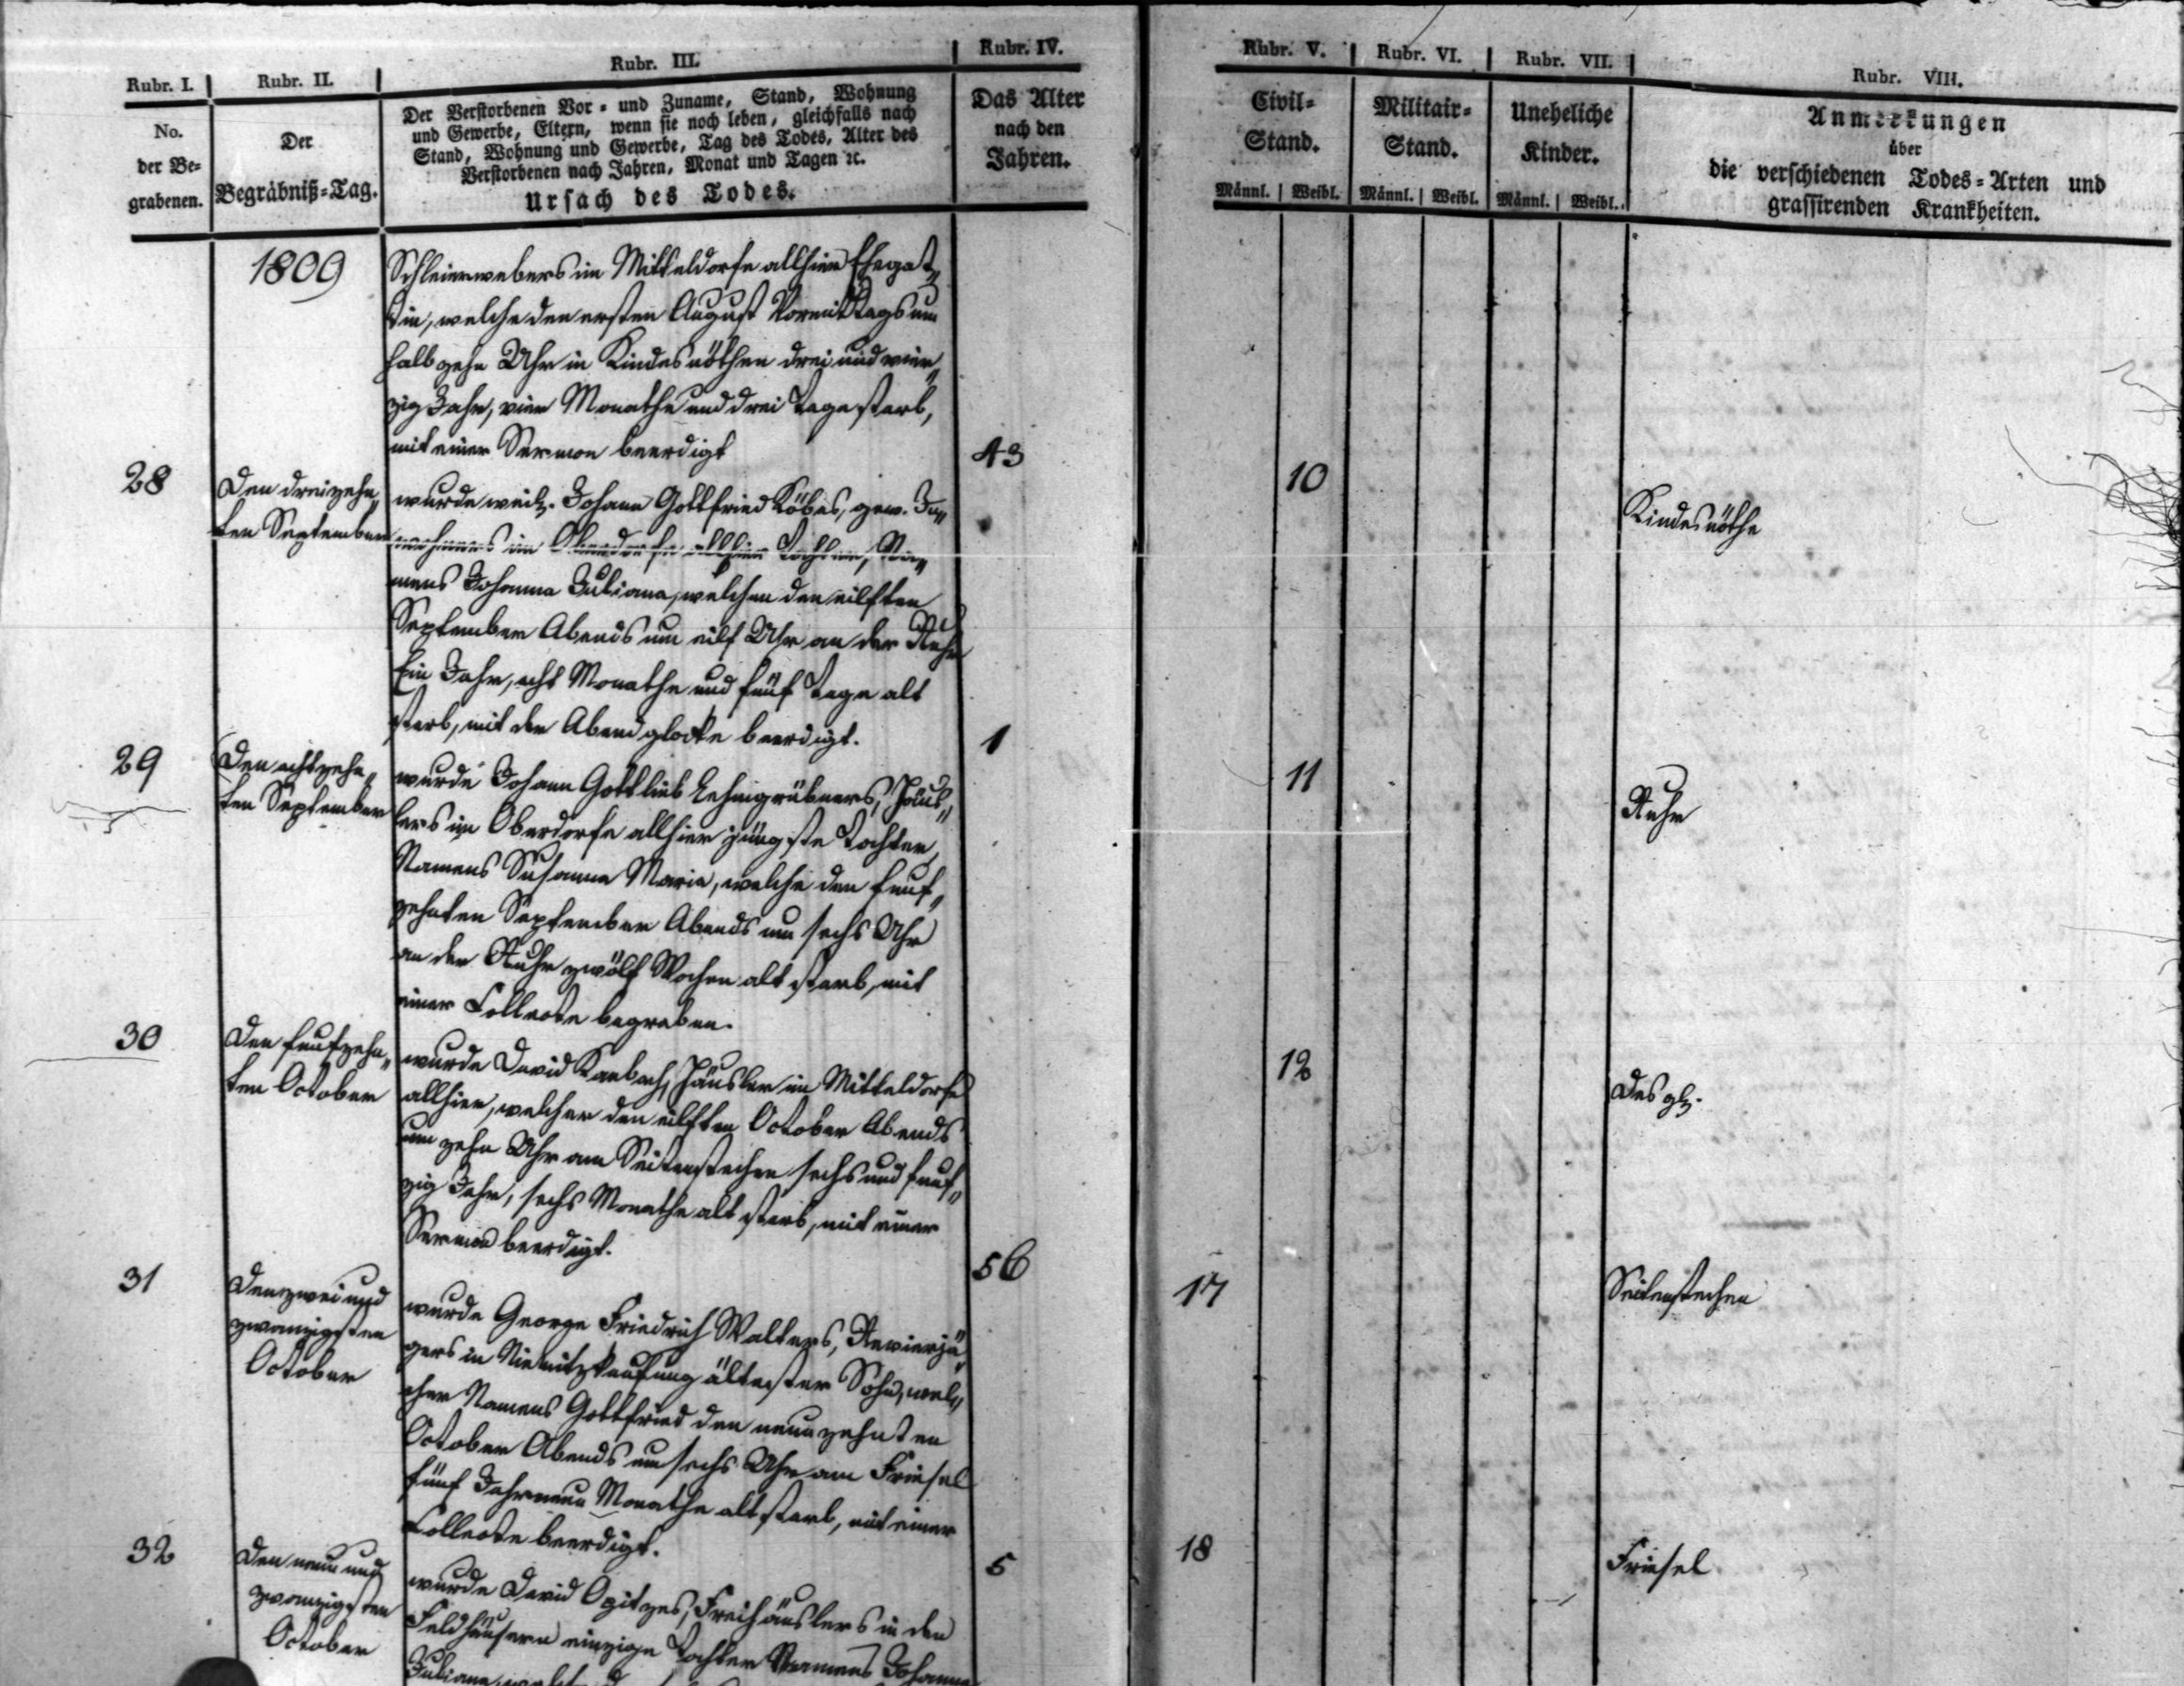 Rubr. I. Rubr. II. Rubr. III. Rubr. IV. Rubr. V. Rubr. VI. Rubr. VII. Rubr. VIII.
No.
der Be-
grabenen.
Der
Begräbniß-Tag.
Der Verstorbenen Vor- und Zuname, Stand, Wohnung
und Gewerbe, Eltern, wenn sie noch leben, gleichfalls nach
Stand, Wohnung und Gewerbe, Tag des Todes, Alter des
Verstorbenen nach Jahren, Monat und Tagen ꝛc.
Ursach des Todes.
Das Alter
nach den
Jahren.
Civil-
Stand.
Männl. Weibl.
Militair-
Stand.
Männl. Weibl.
Uneheliche
Kinder.
Männl. Weibl.
Anmerkungen
über
die verschiedenen Todes-Arten und
grassirenden Krankheiten.
1809
Schleierwebers im Mitteldorfe allhier Ehegat„
tin, welche den ersten August Vormittags um
halb zehn Uhr in Kindesnöthen drei und vier„
zig Jahr, vier Monathe und drei Tage starb,
mit einer Sermon beerdigt
43
10
Kindesnöthe
28
Den dreizehn„
ten September
wurde weil. Johann Gottfried gew. In„
wohners im Oberdorfe allhier Tochter, Na„
mens Johanna Juliana, welche den eilften
September Abends um eilf Uhr an der Ruhr
Ein Jahr, acht Monathe und fünf Tage alt
starb, mit der Abendglocke beerdigt.
1
11
Ruhr
29
Den achtzehn„
ten September
wurde Johann Gottlieb Lehmgrübners, Häus„
lers im Oberdorfe allhier jüngste Tochter,
Namens Susanna Maria, welche den funf„
zehnten September Abends um sechs Uhr
an der Ruhr zwölf Wochen alt starb, mit
einer Collecte begraben.
12
Desgl.
30
Den funfzehn„
ten October
wurde David Häusler im Mitteldorfe
allhier, welcher den eilften October Abends
um zehn Uhr am Seitenstechen sechs und funf„
zig Jahr, sechs Monathe alt starb, mit einer
Sermon beerdigt.
56
17
Seitenstechen
31
Den zwei und
zwanzigsten
October
wurde George Friedrich Walters, Revierjä„
gers in ältester Sohn, wel„
cher Namens Gottfried den neunzehnten
October Abends um sechs Uhr am Friesel
fünf Jahr neun Monathe alt starb, mit einer
Collecte beerdigt.
5
18
Friesel
32
Den neun und
zwanzigsten
October
wurde David Opitzes, Freihäuslers in den
Feldhäusern einzige Tochter Namens Johanna
Juliana,